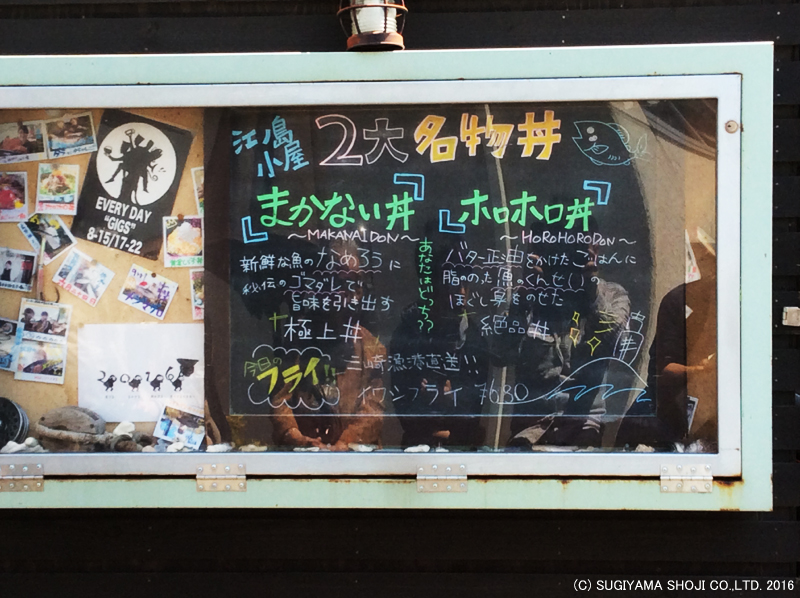 江ノ島
小屋
2大名物丼
『まかない丼』
～MAKANAIDON～
新鮮な魚のなめろうに
秘伝のゴマダレで
旨味を引き出す
極上丼
あなたはどっち??
『ホロホロ丼』
～HOROHORODON～
バター正油をかけたごはんに
脂ののった魚のくんせいの
ほぐし身をのせた
絶品丼
今日の
フライ!!
三崎漁港直送!!
イワシフライ ¥680
EVERY DAY
"GIGS"
8-15/17-22
(C) SUGIYAMA SHOJI CO.,LTD. 2016